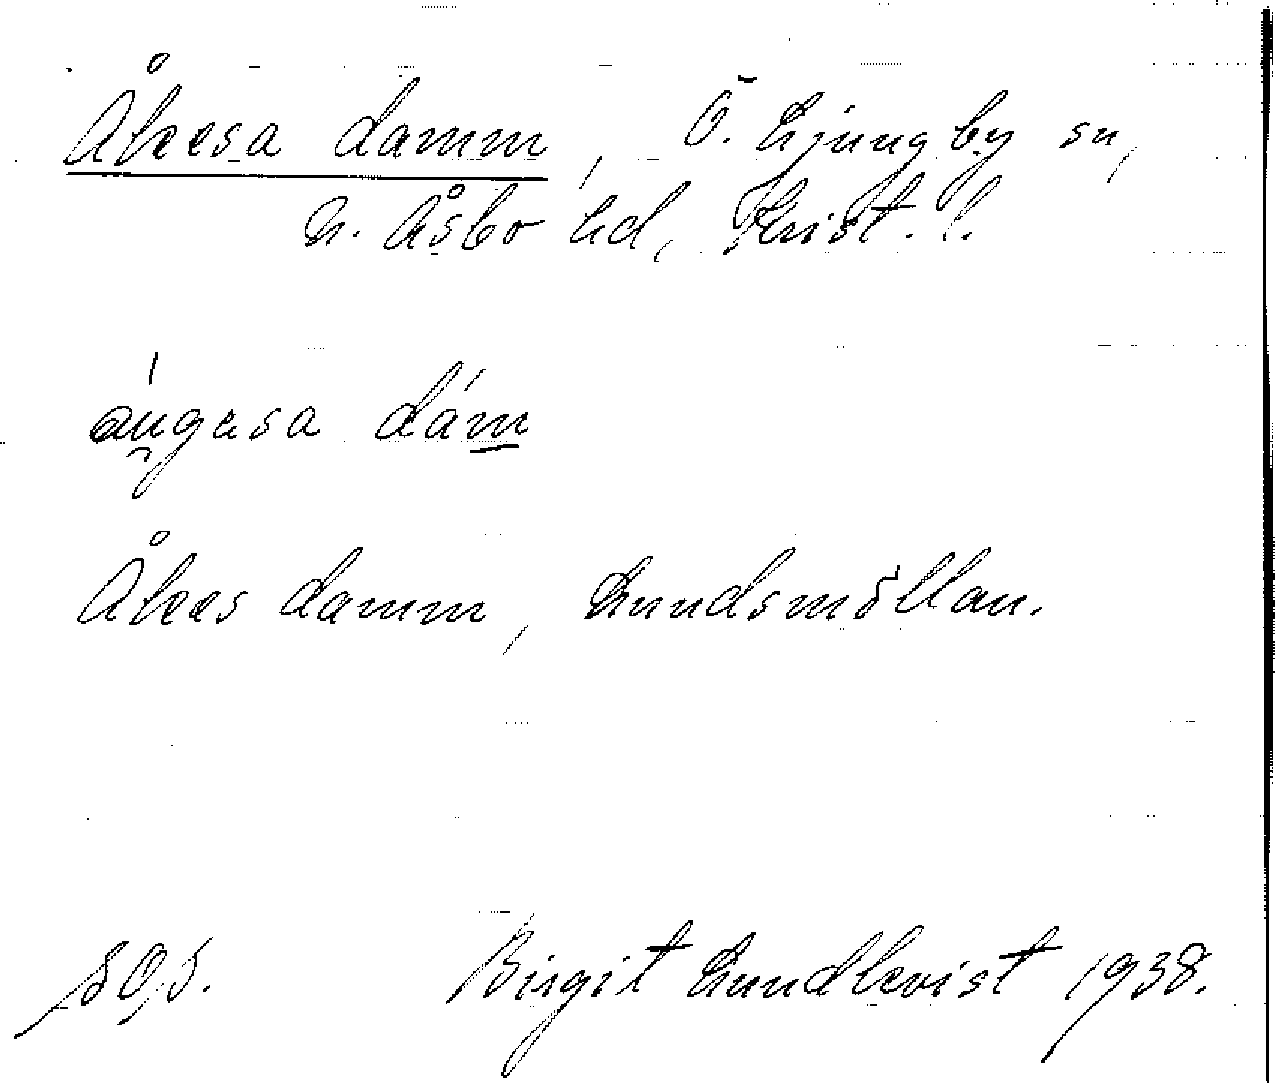 Åkesa damm, Ö. Ljungby sn,
N. Åsbo hd, Krist. l.
dam
Åkes damm, Lundsmöllan.
Birgit Lundkvist 1938.